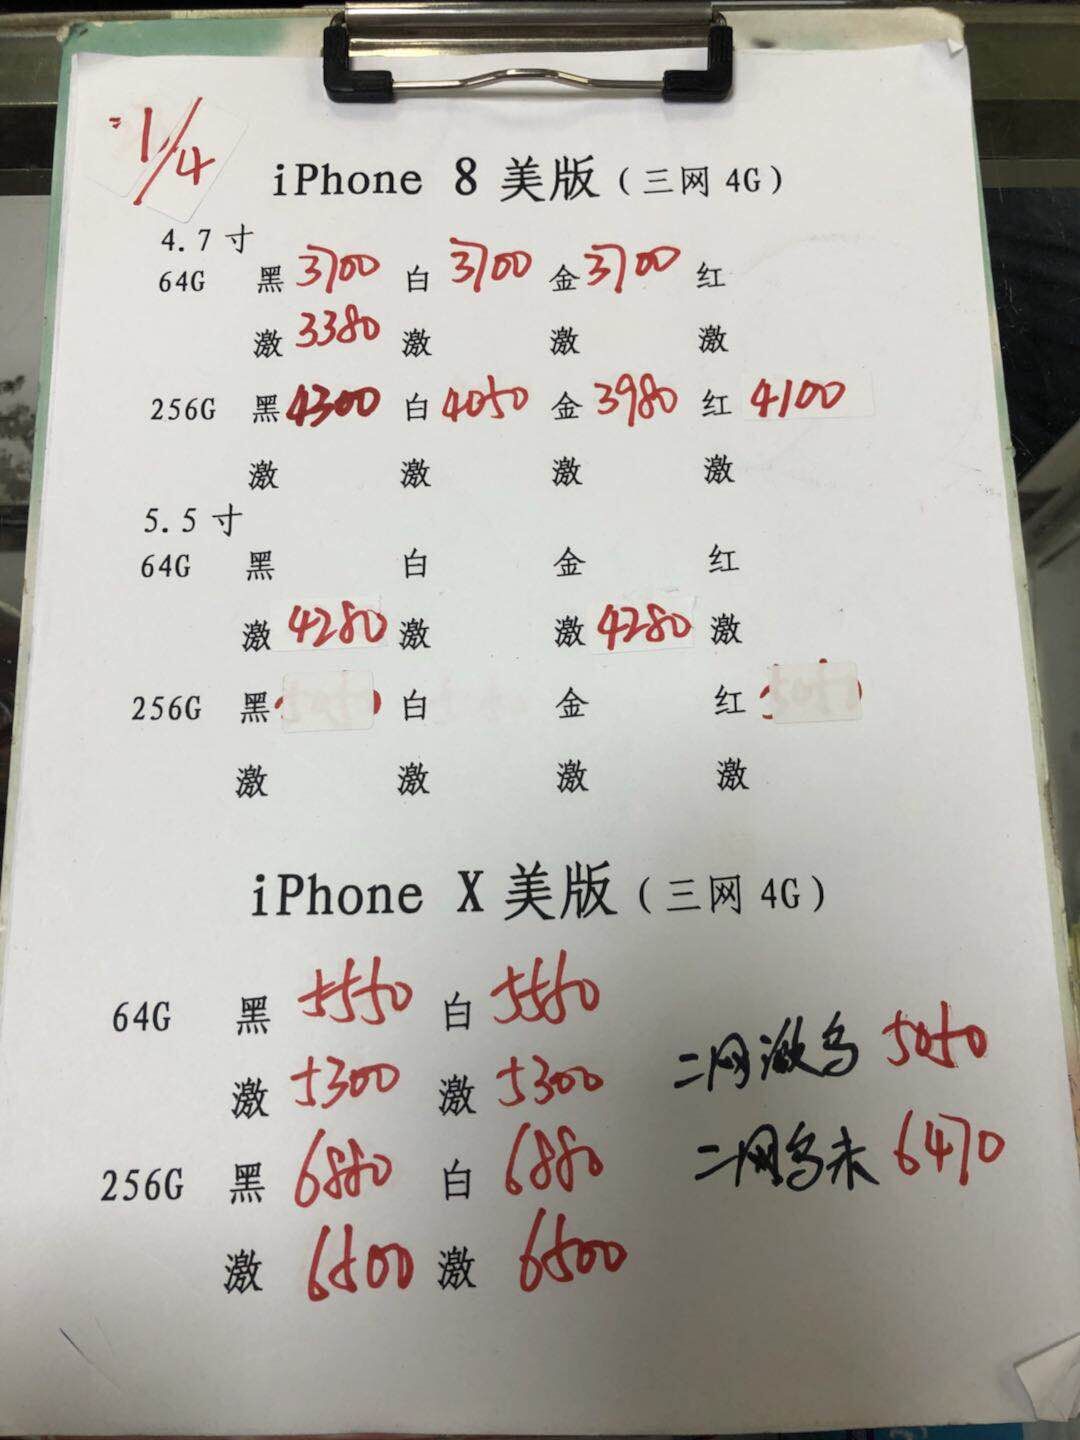 1/4
iPhone 8 美版（三网 4G）
4.7 寸
64G 黑 3700 白 3700 金 3700 红
激 3380 激 激 激
256G 黑 4300 白 4050 金 3980 红 4100
激 激 激 激
5.5 寸
64G 黑 白 金 红
激 4280 激 激 4280 激
256G 黑 白 金 红
激 激 激 激
iPhone X 美版（三网 4G）
64G 黑 5550 白 5550
激 5300 激 5300
二网激乌 5050
256G 黑 6880 白 6880
二网乌未 6470
激 6500 激 6500